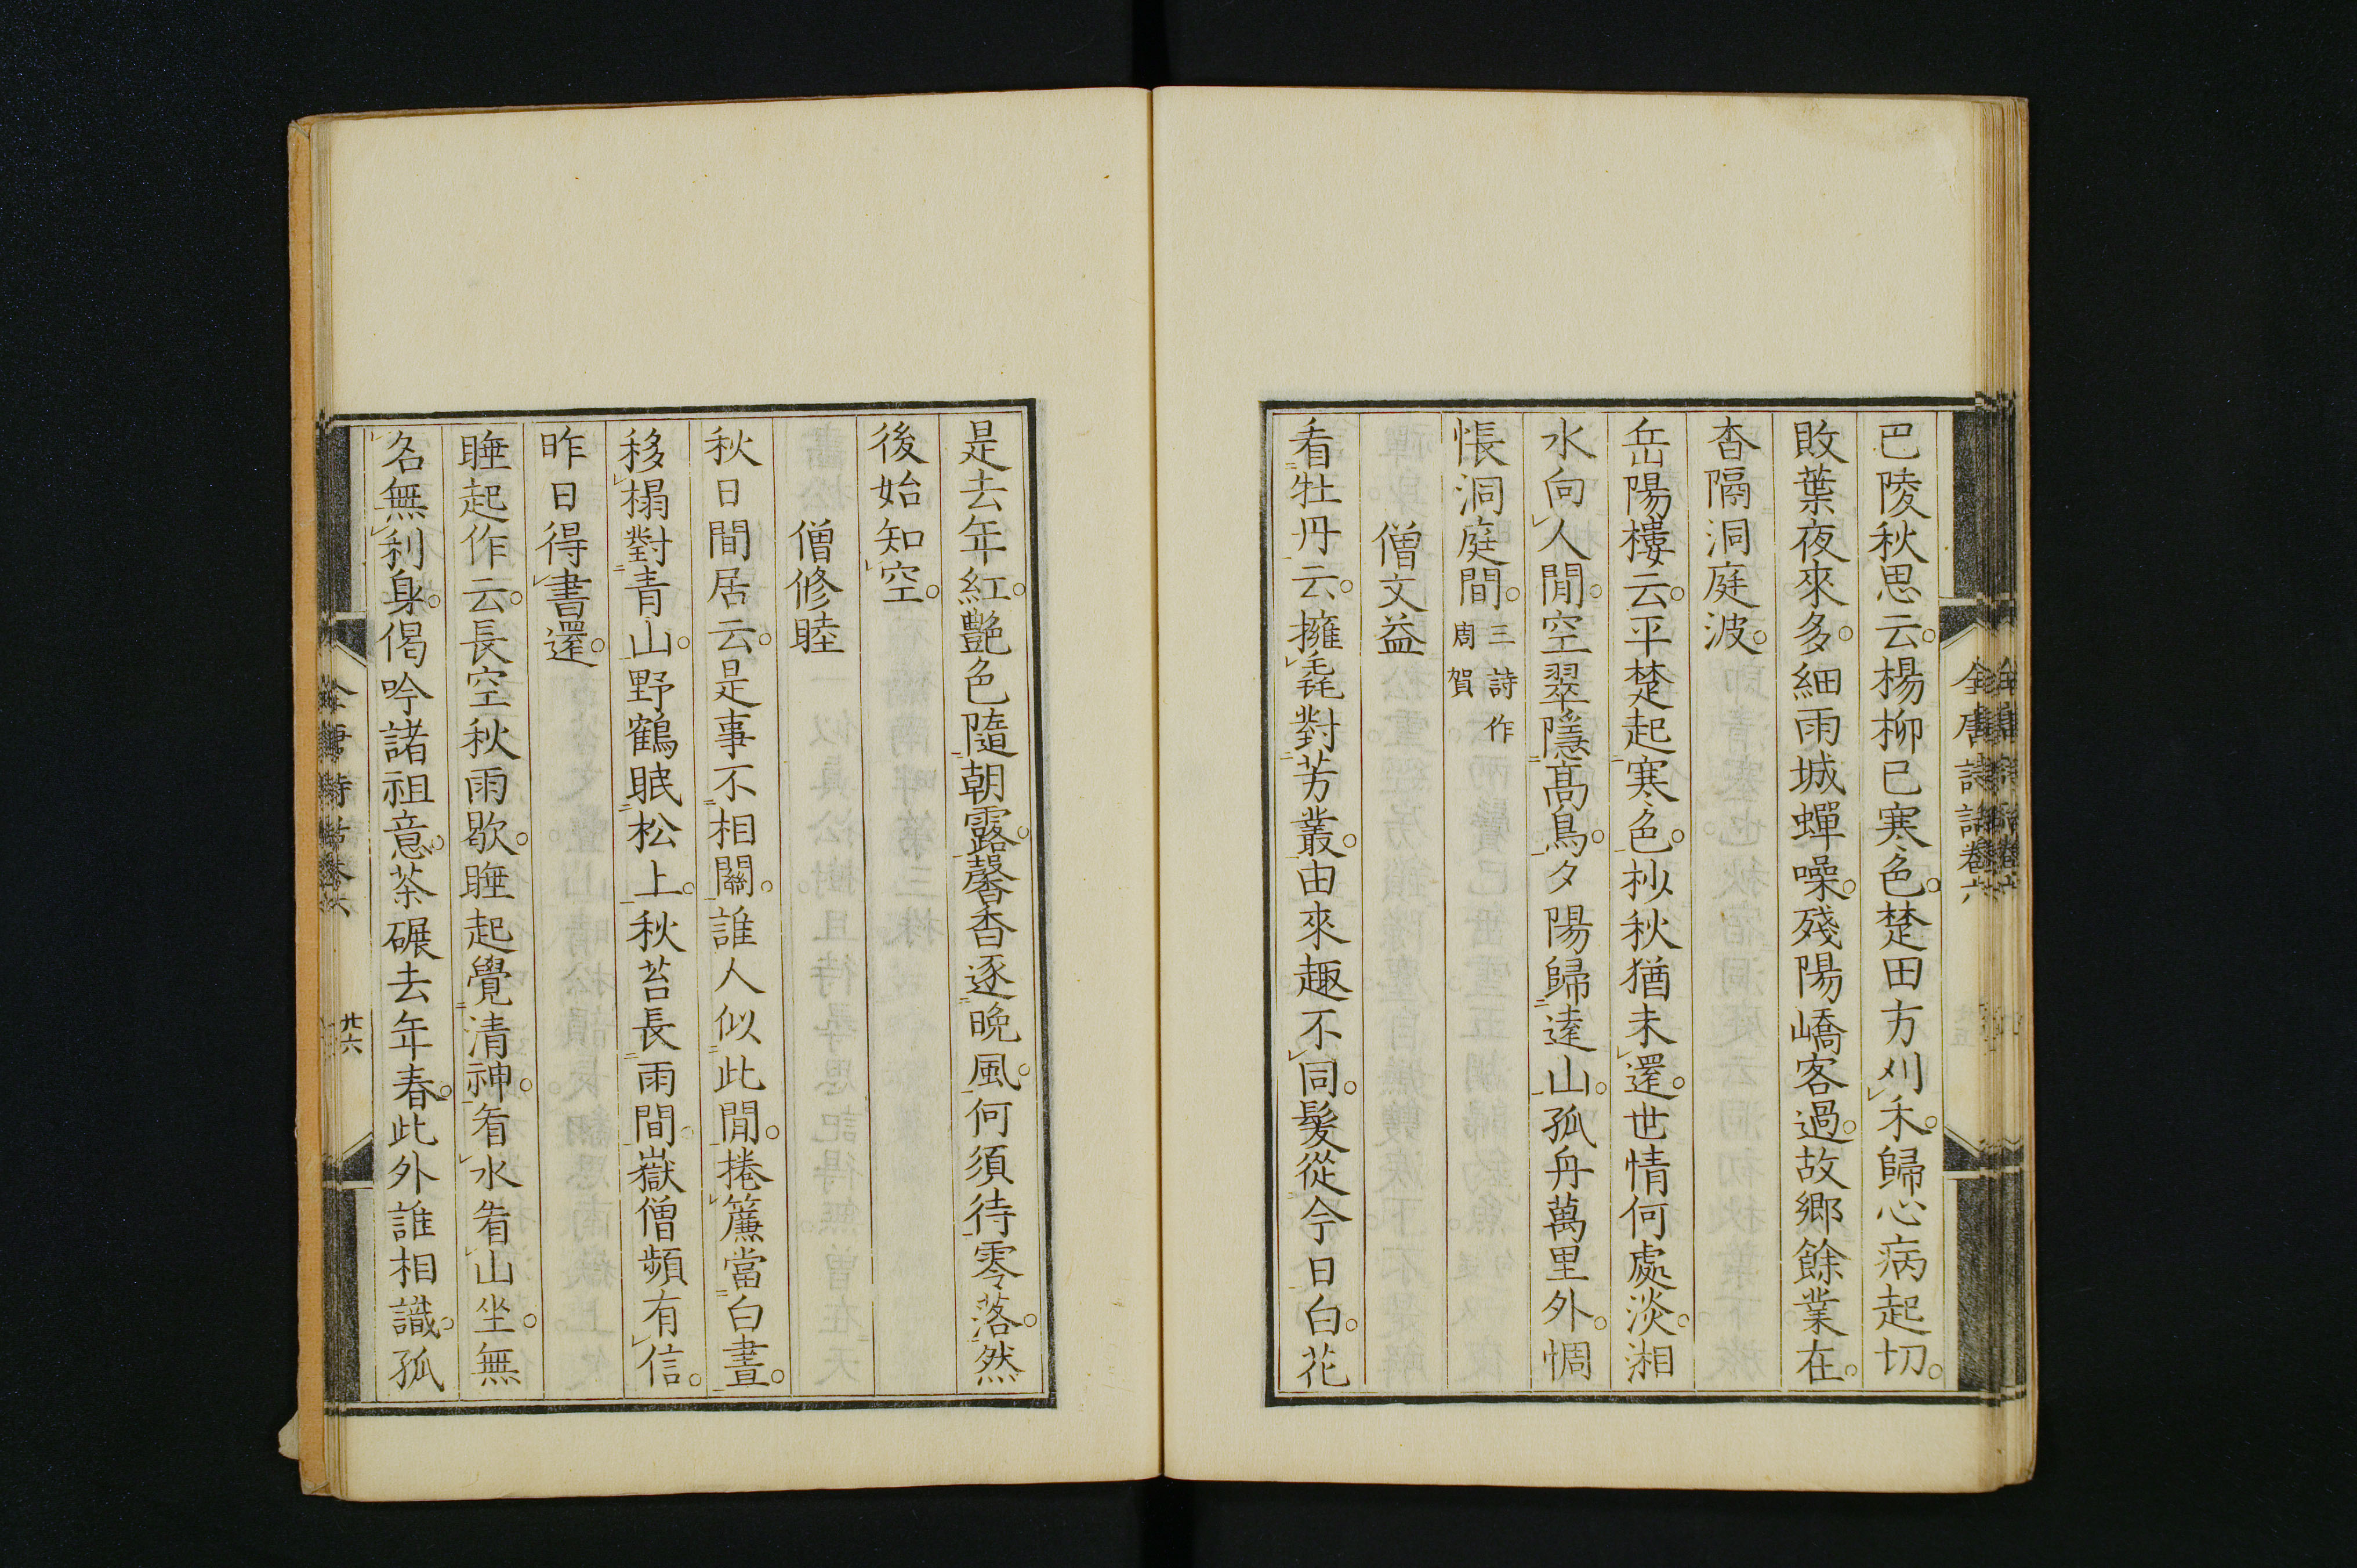 巴陵秋思云。楊柳已寒色。楚田方刈禾。歸心病起切。
敗葉夜來多。細雨城蟬噪。殘陽嶠客過。故鄉餘業在。
杳隔洞庭波。
岳陽樓云。平楚起寒色。杪秋猶未還。世情何處淡。湘
水向人閒。空翠隱高鳥。夕陽歸遠山。孤舟萬里外。惆
悵洞庭間。三詩作
周賀
僧文益
看牡丹云。擁毳對芳叢。由來趣不同。髮從今日白。花
是去年紅。艷色隨朝露。馨香逐晚風。何須待零落。然
後始知空。
僧修睦
秋日閒居云。是事不相關。誰人似此閒。捲簾當白晝。
移榻對青山。野鶴眠松上。秋苔長雨間。嶽僧頻有信。
昨日得書還。
睡起作云。長空秋雨歇。睡起覺清神。看水看山坐。無
名無利身。偈吟諸祖意。茶碾去年春。此外誰相識。孤
全唐詩話卷六
廿六